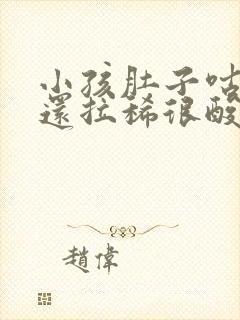 小孩肚子咕
還拉稀很酸
趙偉